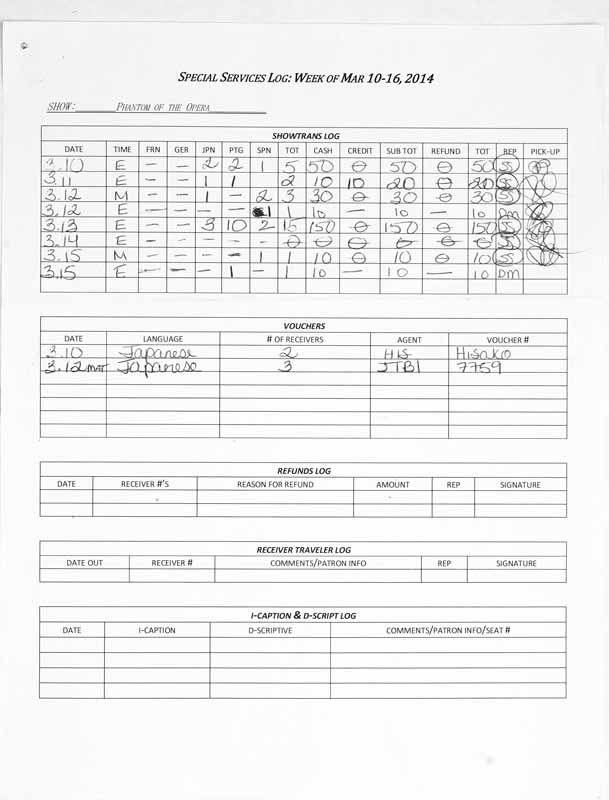 SPECIAL SERVICES LOG: WEEK OF MAR 10-16, 2014
SHOW: PHANTOM OF THE OPERA
SHOWTRANS LOG
DATE TIME FRN GER JPN PTG SPN TOT CASH CREDIT SUB TOT REFUND TOT REP PICK-UP
3.10 E — — 2 2 1 5 50 0 50 0 50 SS
3.11 E — — 1 1 2 10 10 20 0 20 SS
3.12 M — — 1 - 2 3 30 0 30 0 30 SS
3.12 E — — — — 1 1 10 — 10 — 10 DM
3.13 E — — 3 10 2 15 150 0 150 0 150 SS
3.14 E - - - - - 0 0 0 0 0 0 SS
3.15 M - - - - 1 1 10 0 10 0 10 SS
3.15 E — — — 1 - 1 10 — 10 — 10 DM
VOUCHERS
DATE LANGUAGE # OF RECEIVERS AGENT VOUCHER #
3.10 Japanese 2 HIS Hisako
3.12 MAT Japanese 3 JTBI 7759
REFUNDS LOG
DATE RECEIVER #'S REASON FOR REFUND AMOUNT REP SIGNATURE
RECEIVER TRAVELER LOG
DATE OUT RECEIVER # COMMENTS/PATRON INFO REP SIGNATURE
I-CAPTION & D-SCRIPT LOG
DATE I-CAPTION D-SCRIPTIVE COMMENTS/PATRON INFO/SEAT #